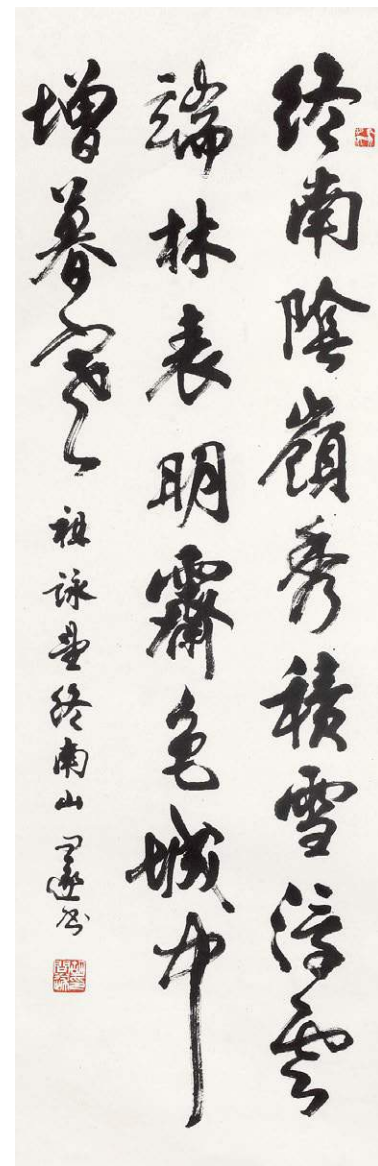 終南陰嶺秀積雪浮雲
端林表明霽色城中
增暮寒 祖詠望終南山 書